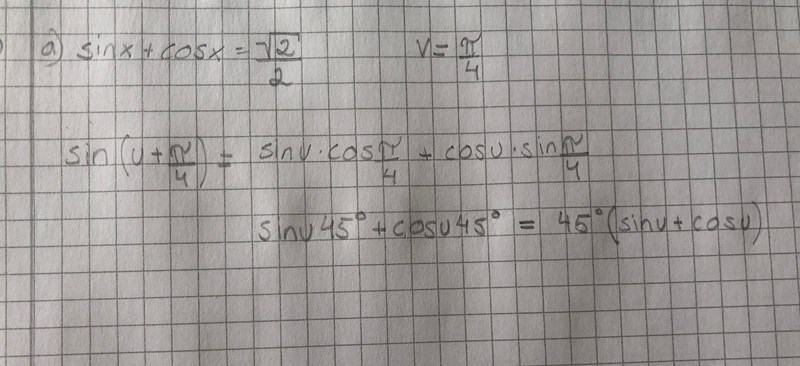 a) sinx + cosx = √2/2 v = π/4
sin(u + π/4) = sinu · cos π/4 + cosu · sin π/4
sinu45° + cosu45° = 45°(sinu + cosu)